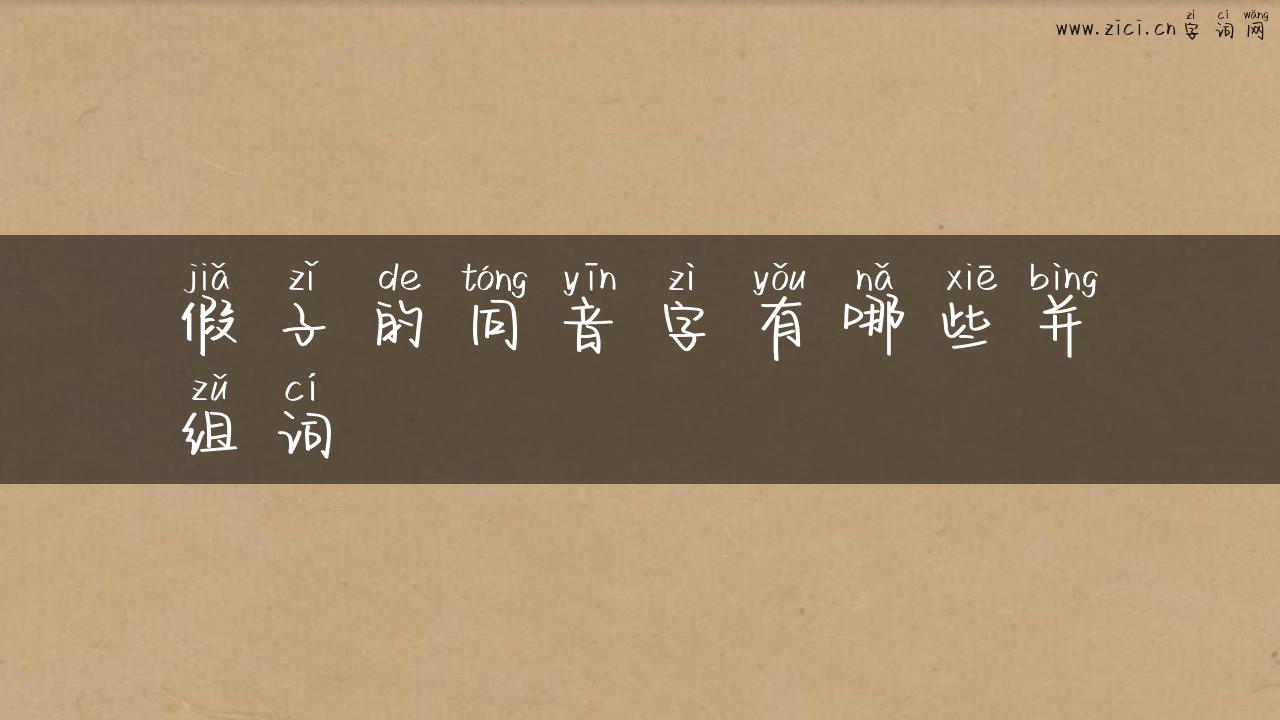 zì cí wǎng
www.zici.cn 字 词 网
jiǎ zǐ de tóng yīn zì yǒu nǎ xiē bìng
假 子 的 同 音 字 有 哪 些 并
zǔ cí
组 词